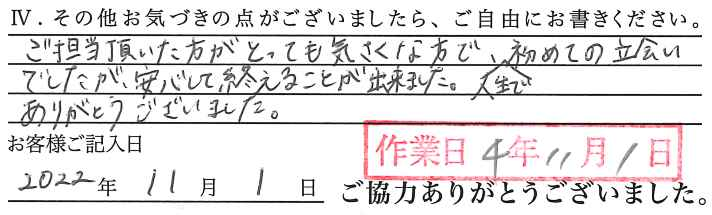 Ⅳ．その他お気づきの点がございましたら、ご自由にお書きください。
ご担当頂いた方がとっても気さくな方で、人生で初めての立会い
でしたが、安心して終えることが出来ました。
ありがとうございました。
お客様ご記入日
作業日 4年11月1日
2022年 11月 1日 ご協力ありがとうございました。